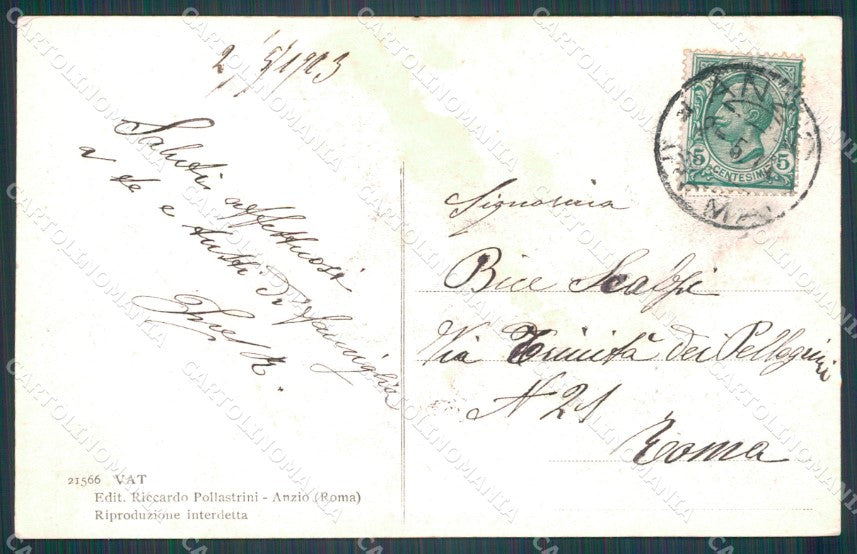 Saluti affettuosi
a te e tutti di famiglia
Signorina
Bice Scalpi
Via Trinità dei Pellegrini
N 21
Roma
5 5
CENTESIMI
21566 VAT
Edit. Riccardo Pollastrini - Anzio (Roma)
Riproduzione interdetta
CARTOLINOMANIA